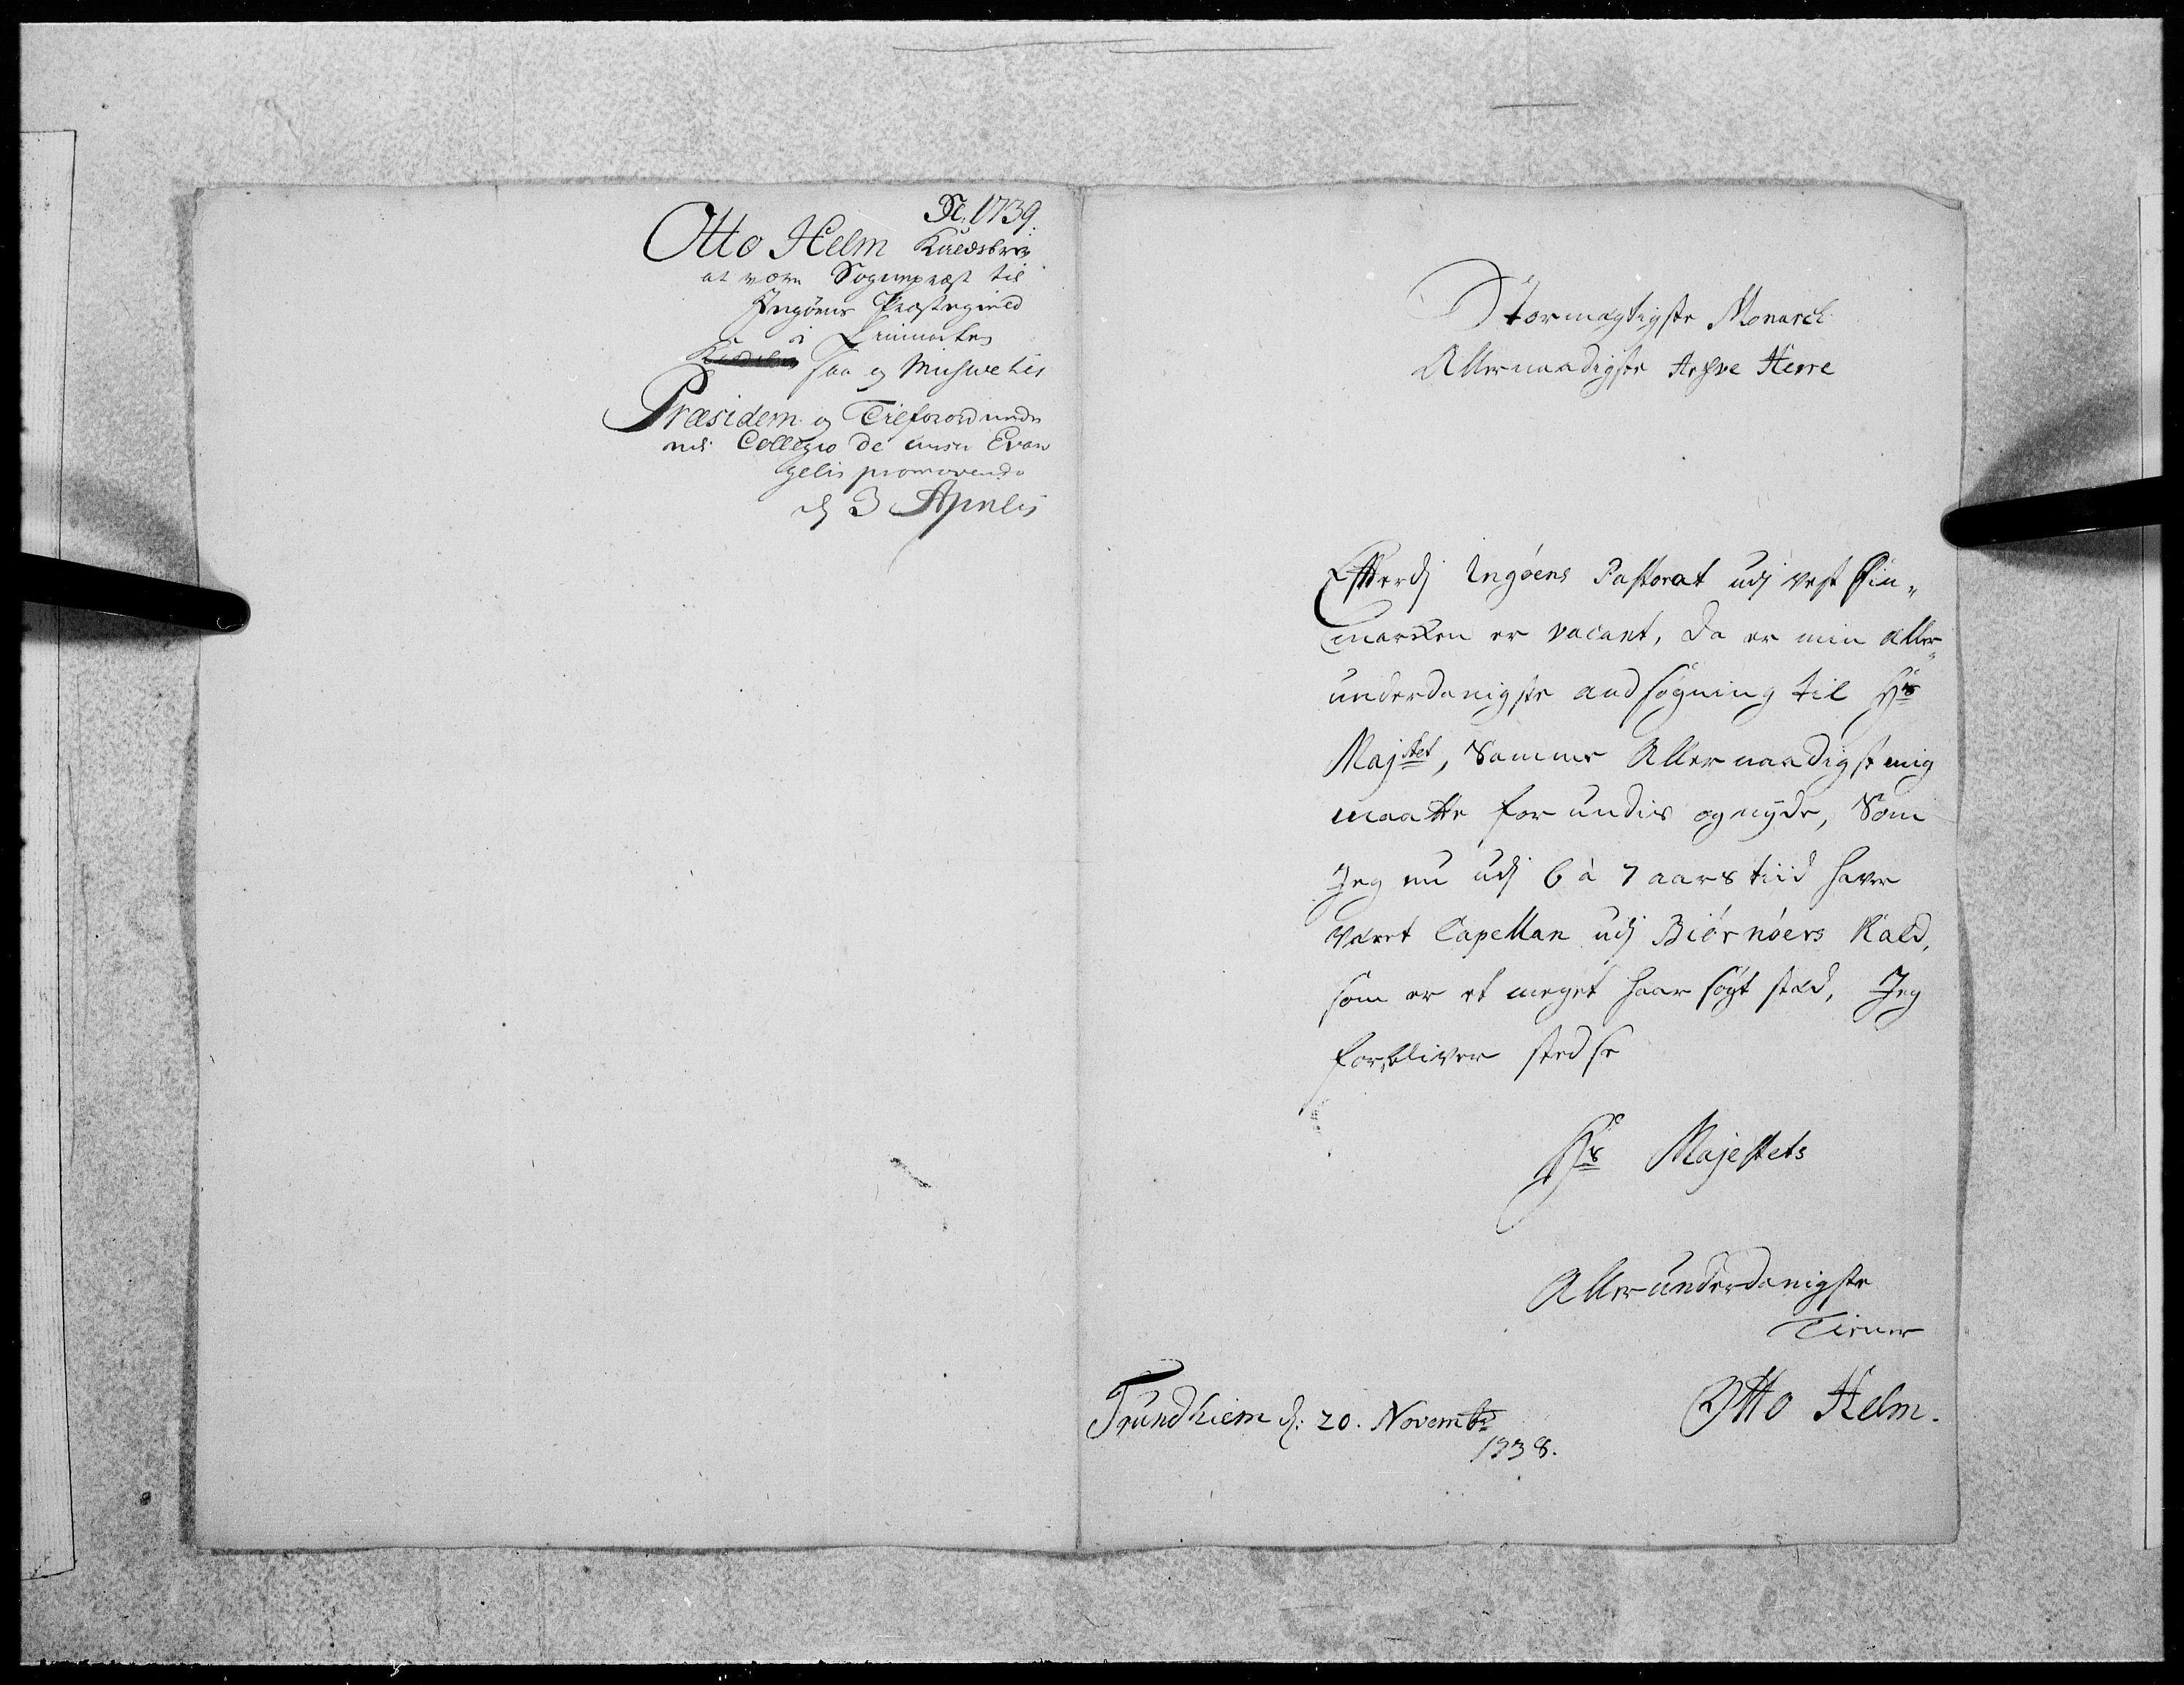 1739.
Otto Helm Kaldsbrev
at være Sogneprest til
Ingøens Præstegield
i Finmarken
saa og Missive til
Præsidem og Tilforordnede
udi Collegio de cursu Evan
gelii promovendo
dj 3 Aprilis
Stormægtigste Monarch
Allernaadigste Arfve Herre
Efterdj Ingøens Pastorat udj Vest Fin„
marken er vacant, da er min aller„
underdanigste andsøgning til Hs
Majtet, Samme Allernaadigst mig
maatte forundis og nyde, Som
Jeg nu udj 6 à 7 aars tiid haver
været Capellan udj Biørnøers Kald,
som er et meget haar søgt stæd, Jeg
forbliver stedse
Hs Majestets
Allerunderdanigste
Tiener
Otto Helm.
Trundhiem dj: 20. Novembr
1738.